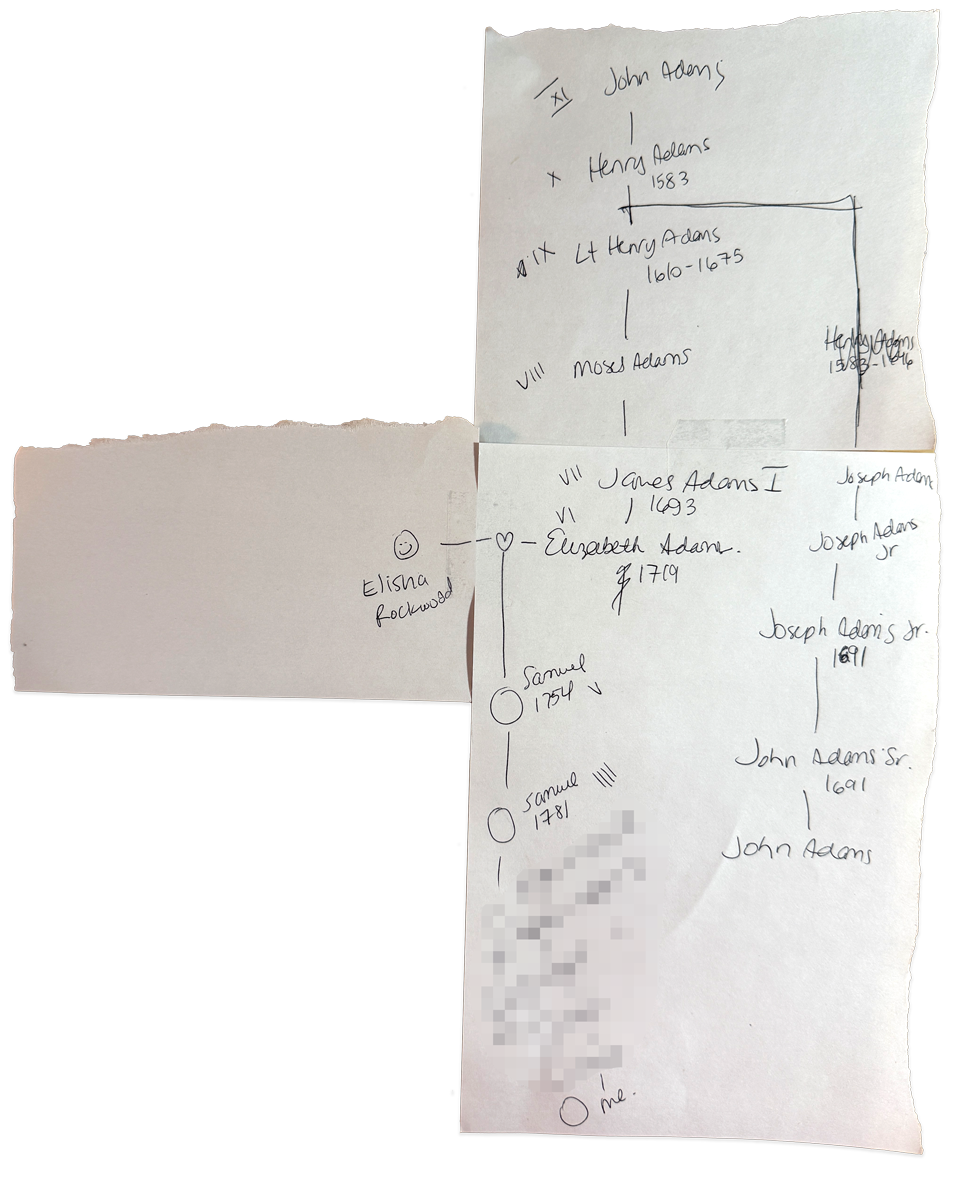 XI John Adams
X Henry Adams
1583
IX Lt Henry Adams
1610-1675
VIII Moses Adams
Henry Adams
1583-1646
VII James Adams I
1693
Joseph Adams
VI
Elizabeth Adams.
1719
Joseph Adams
Jr
Elisha
Rockwood
Joseph Adams Jr.
1691
Samuel
1754 V
John Adams Sr.
1691
Samuel IIII
1781
John Adams
me.